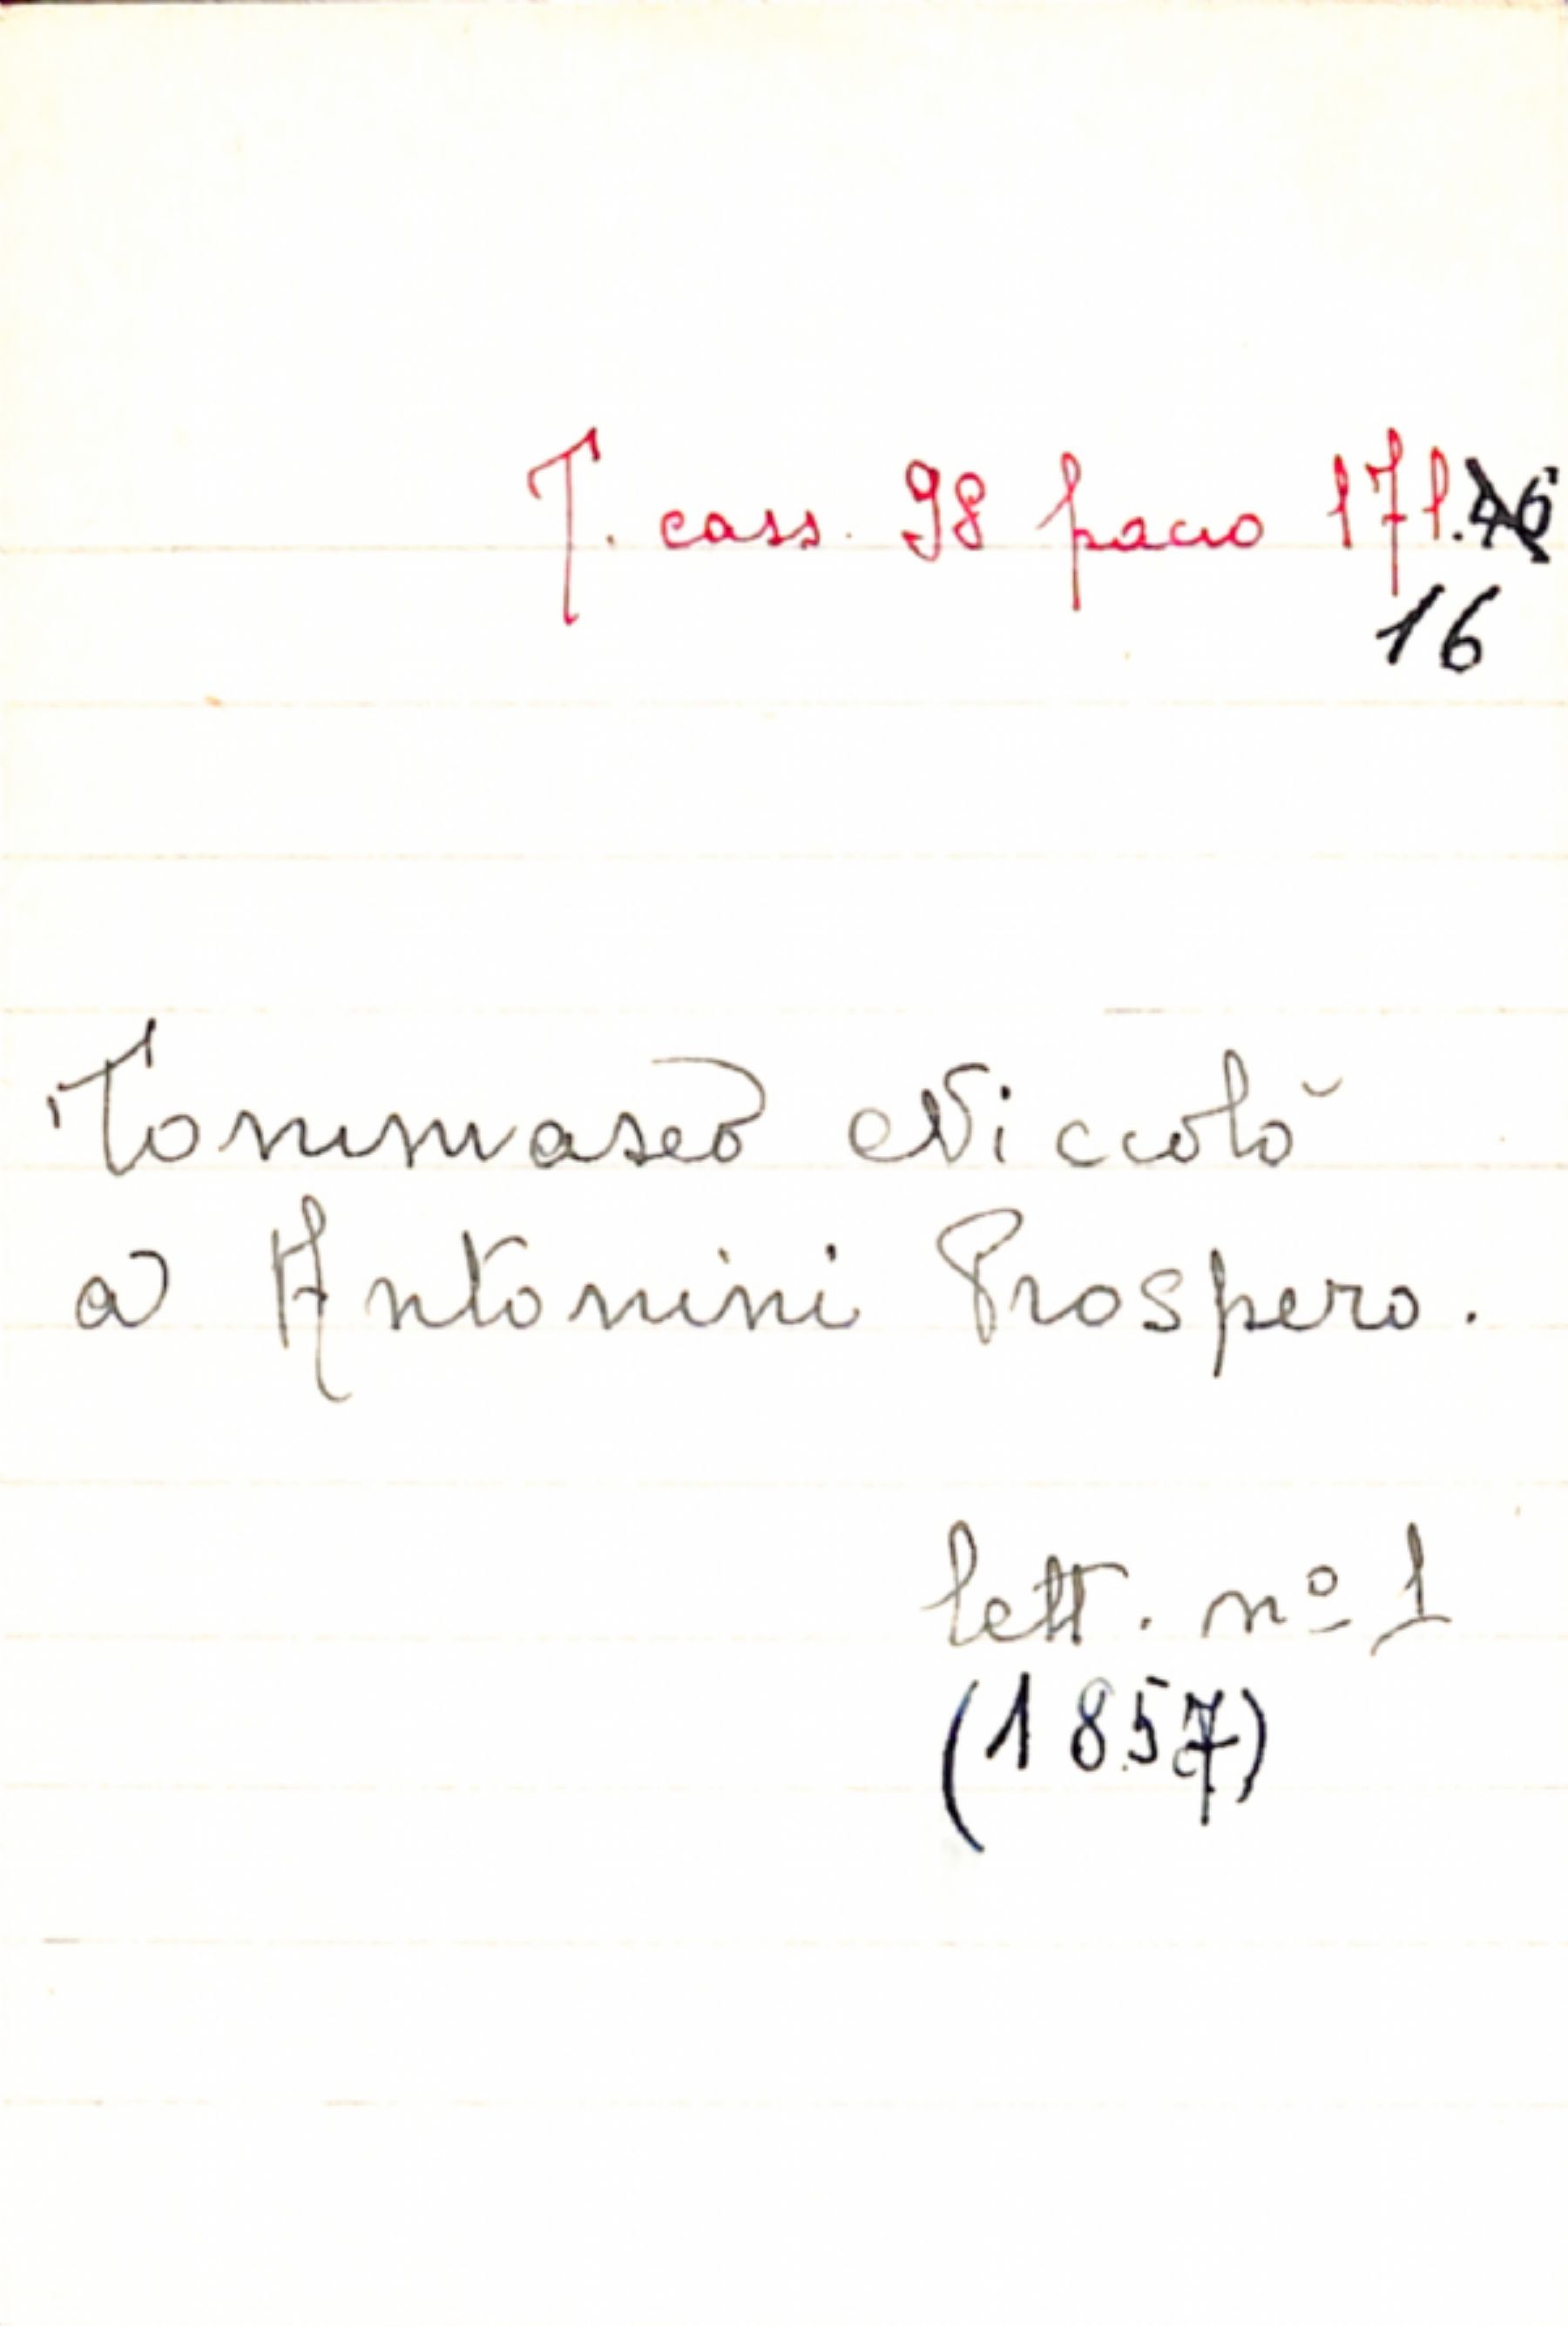 T. cass. 98 pacco 171.
16
Tommaseo Niccolò
a Antonini Prospero.
lett. nº 1
(1857)